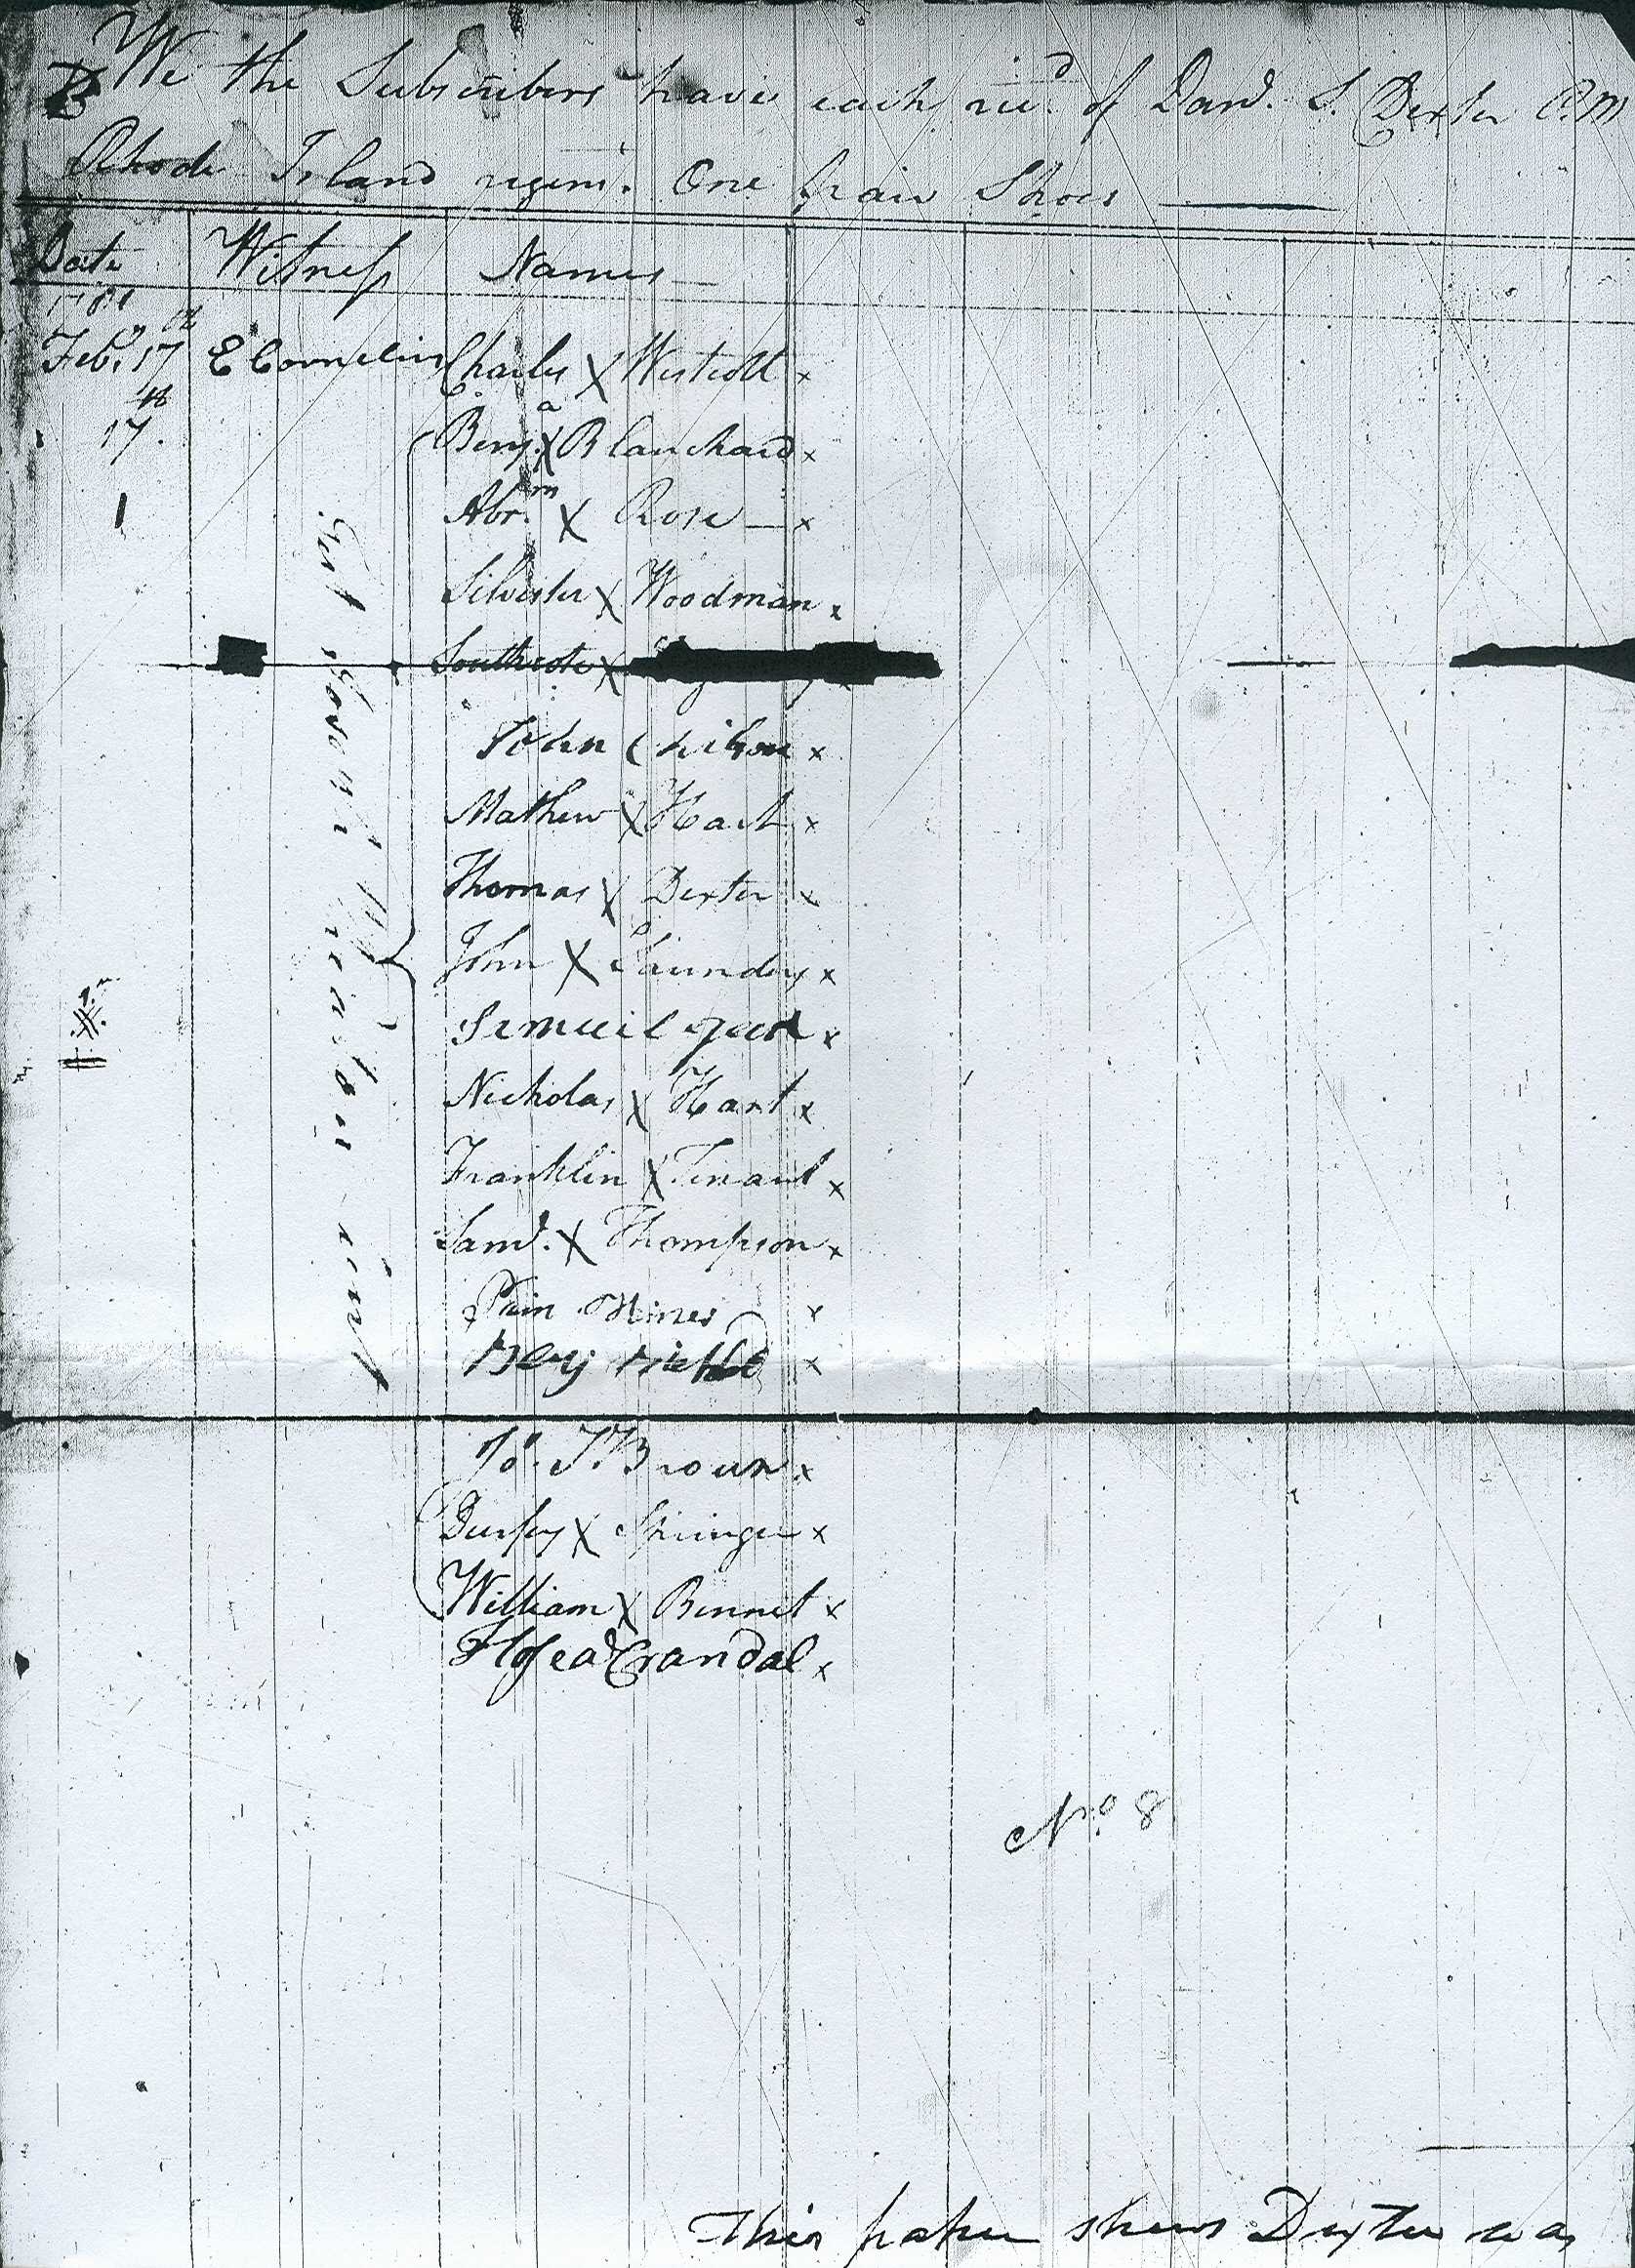 B We the Subscribers have each rec.d of Dan.l S. Dexter P.M
Rhode Island regim.t One pair Shoes
Date Witness Names
1781
Feb.y 17th E Cornelius Charles X Westcott x
17th. Benj.a X Blanchard x
1 Abr.m X Rose x
Silvester X Woodman x
Southcote X
John Chilson x
Mathew X Hart x
Thomas X Dexter x
John X Saunders x
Samuel x
Nicholas X Hart x
Franklin X Tenant x
Sam.l X Thompson x
Pain Hines x
Benj x
Jo. T. Brown x
Durfey X Springer x
William X Bennet x
Hosea Crandal x
Test Joseph
No. 8
This paper shows Dexter was